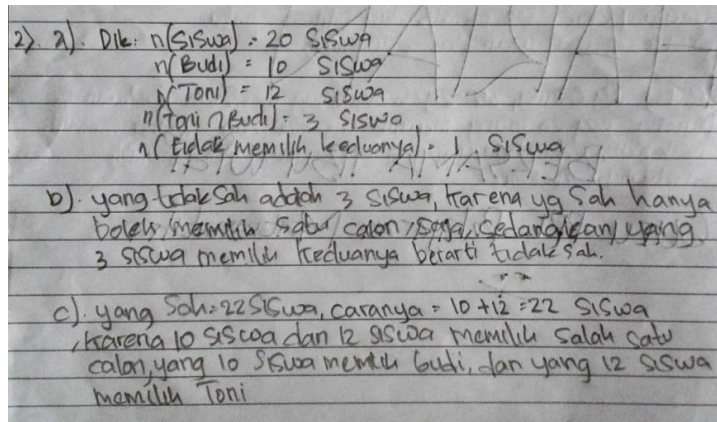 2). a). Dik: n(siswa) = 20 siswa
n(Budi) = 10 siswa
n(Toni) = 12 siswa
n(Toni ∩ Budi) = 3 siswa
n(tidak memilih keduanya) = 1 siswa
b). yang tidak sah adalah 3 siswa, karena yg sah hanya
boleh memilih satu calon saja, sedangkan yang
3 siswa memilih keduanya berarti tidak sah.
c). yang sah = 22 siswa, caranya = 10 + 12 = 22 siswa
, karena 10 siswa dan 12 siswa memilih salah satu
calon, yang 10 siswa memilih budi, dan yang 12 siswa
memilih Toni